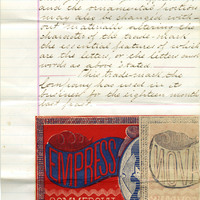 and the ornamental portion
may also be changed with-
out materially altering the
character of the trade-mark
the essential features of which
are the letters, or the letters and
words as above stated.
This trade-mark the
Company has used in its
business for the eighteen months
last past.
EMPRESS
COMMERCIAL